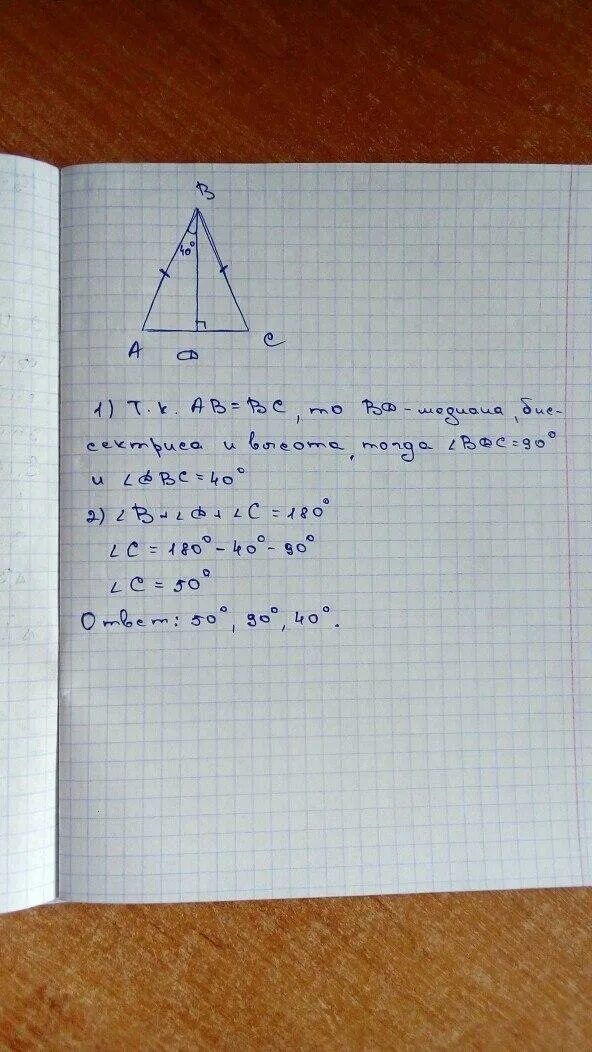 B
40°
A
Ф
C
1) Т.к. AB = BC, то BФ - медиана, бис-
сектриса и высота, тогда ∠BФC = 90°
и ∠ФBC = 40°
2) ∠B + ∠Ф + ∠C = 180°
∠C = 180° - 40° - 90°
∠C = 50°
Ответ: 50°, 90°, 40°.